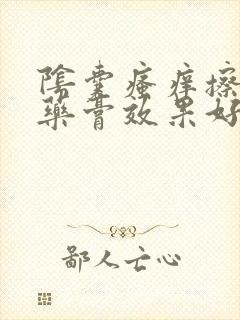 陰囊瘙痒擦
藥膏效果好
鄙人亡心